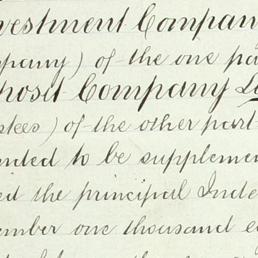 vestment Company
pany) of the one pa
posit Company L
stees) of the other part
nded to be supplemen
ed the principal Inde
ember one thousand e